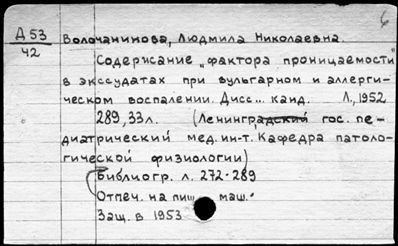 6
Д 53
42
Волочанинова, Людмила Николаевна
Содерисание „фактора проницаемости"
в экссудатах при вульгарном и аллерги-
ческом воспалении. Дисс... канд. Л., 1952
289, 33 л. (Ленинградский гос. пе-
диатрический мед. ин-т. Кафедра патоло-
гической физиологии)
Библиогр. л. 272-289
Отпеч. на пиш. маш.
Защ. в 1953